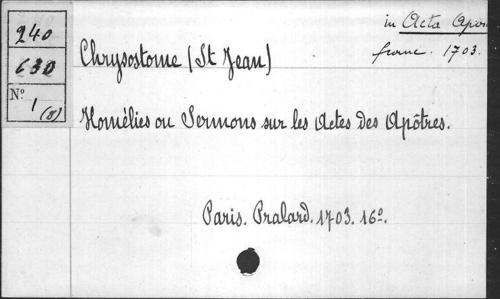 240
630
Nº
1 (8)
in Acta Apos
franc. 1703.
Chrysostome (St Jean)
Homélies ou Sermons sur les Actes des Apôtres.
Paris. Pralard. 1703. 16º.